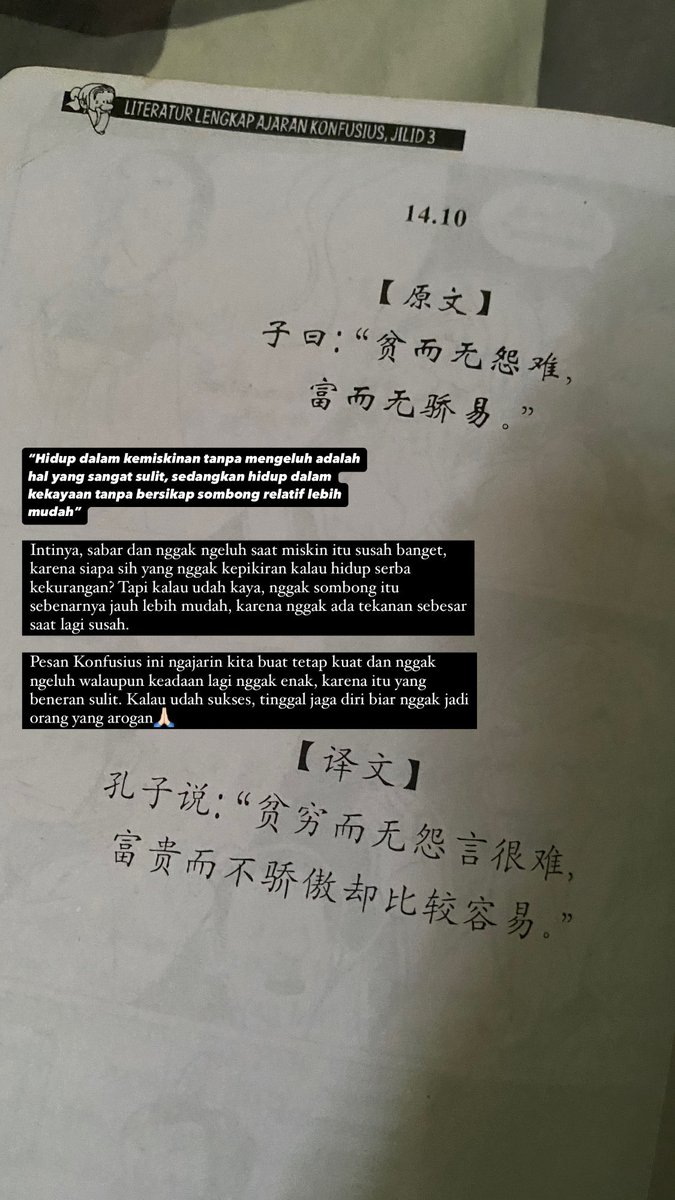 LITERATUR LENGKAP AJARAN KONFUSIUS, JILID 3
14.10
【原文】
子曰：“贫而无怨难，
富而无骄易。”
“Hidup dalam kemiskinan tanpa mengeluh adalah
hal yang sangat sulit, sedangkan hidup dalam
kekayaan tanpa bersikap sombong relatif lebih
mudah”
Intinya, sabar dan nggak ngeluh saat miskin itu susah banget,
karena siapa sih yang nggak kepikiran kalau hidup serba
kekurangan? Tapi kalau udah kaya, nggak sombong itu
sebenarnya jauh lebih mudah, karena nggak ada tekanan sebesar
saat lagi susah.
Pesan Konfusius ini ngajarin kita buat tetap kuat dan nggak
ngeluh walaupun keadaan lagi nggak enak, karena itu yang
beneran sulit. Kalau udah sukses, tinggal jaga diri biar nggak jadi
orang yang arogan🙏🏻
【译文】
孔子说：“贫穷而无怨言很难，
富贵而不骄傲却比较容易。”